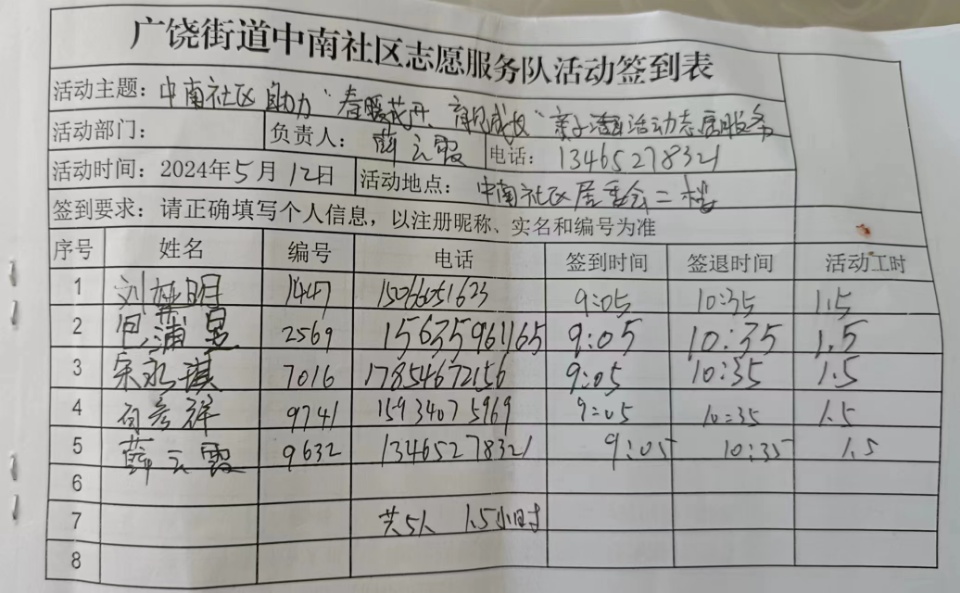 广饶街道中南社区志愿服务队活动签到表
活动主题：中南社区 助力"春暖花开、育见成长"亲子活动志愿服务
活动部门： 负责人：薛云霞 电话：13465278321
活动时间：2024年5月12日 活动地点：中南社区居委会二楼
签到要求：请正确填写个人信息，以注册昵称、实名和编号为准
序号 姓名 编号 电话 签到时间 签退时间 活动工时
1 1447 15066051623 9:05 10:35 1.5
2 2569 15635961165 9:05 10:35 1.5
3 宋永琪 7016 17854672156 9:05 10:35 1.5
4 9741 15934075969 9:05 10:35 1.5
5 薛云霞 9632 13465278321 9:05 10:35 1.5
6
7 共5人 1.5小时
8